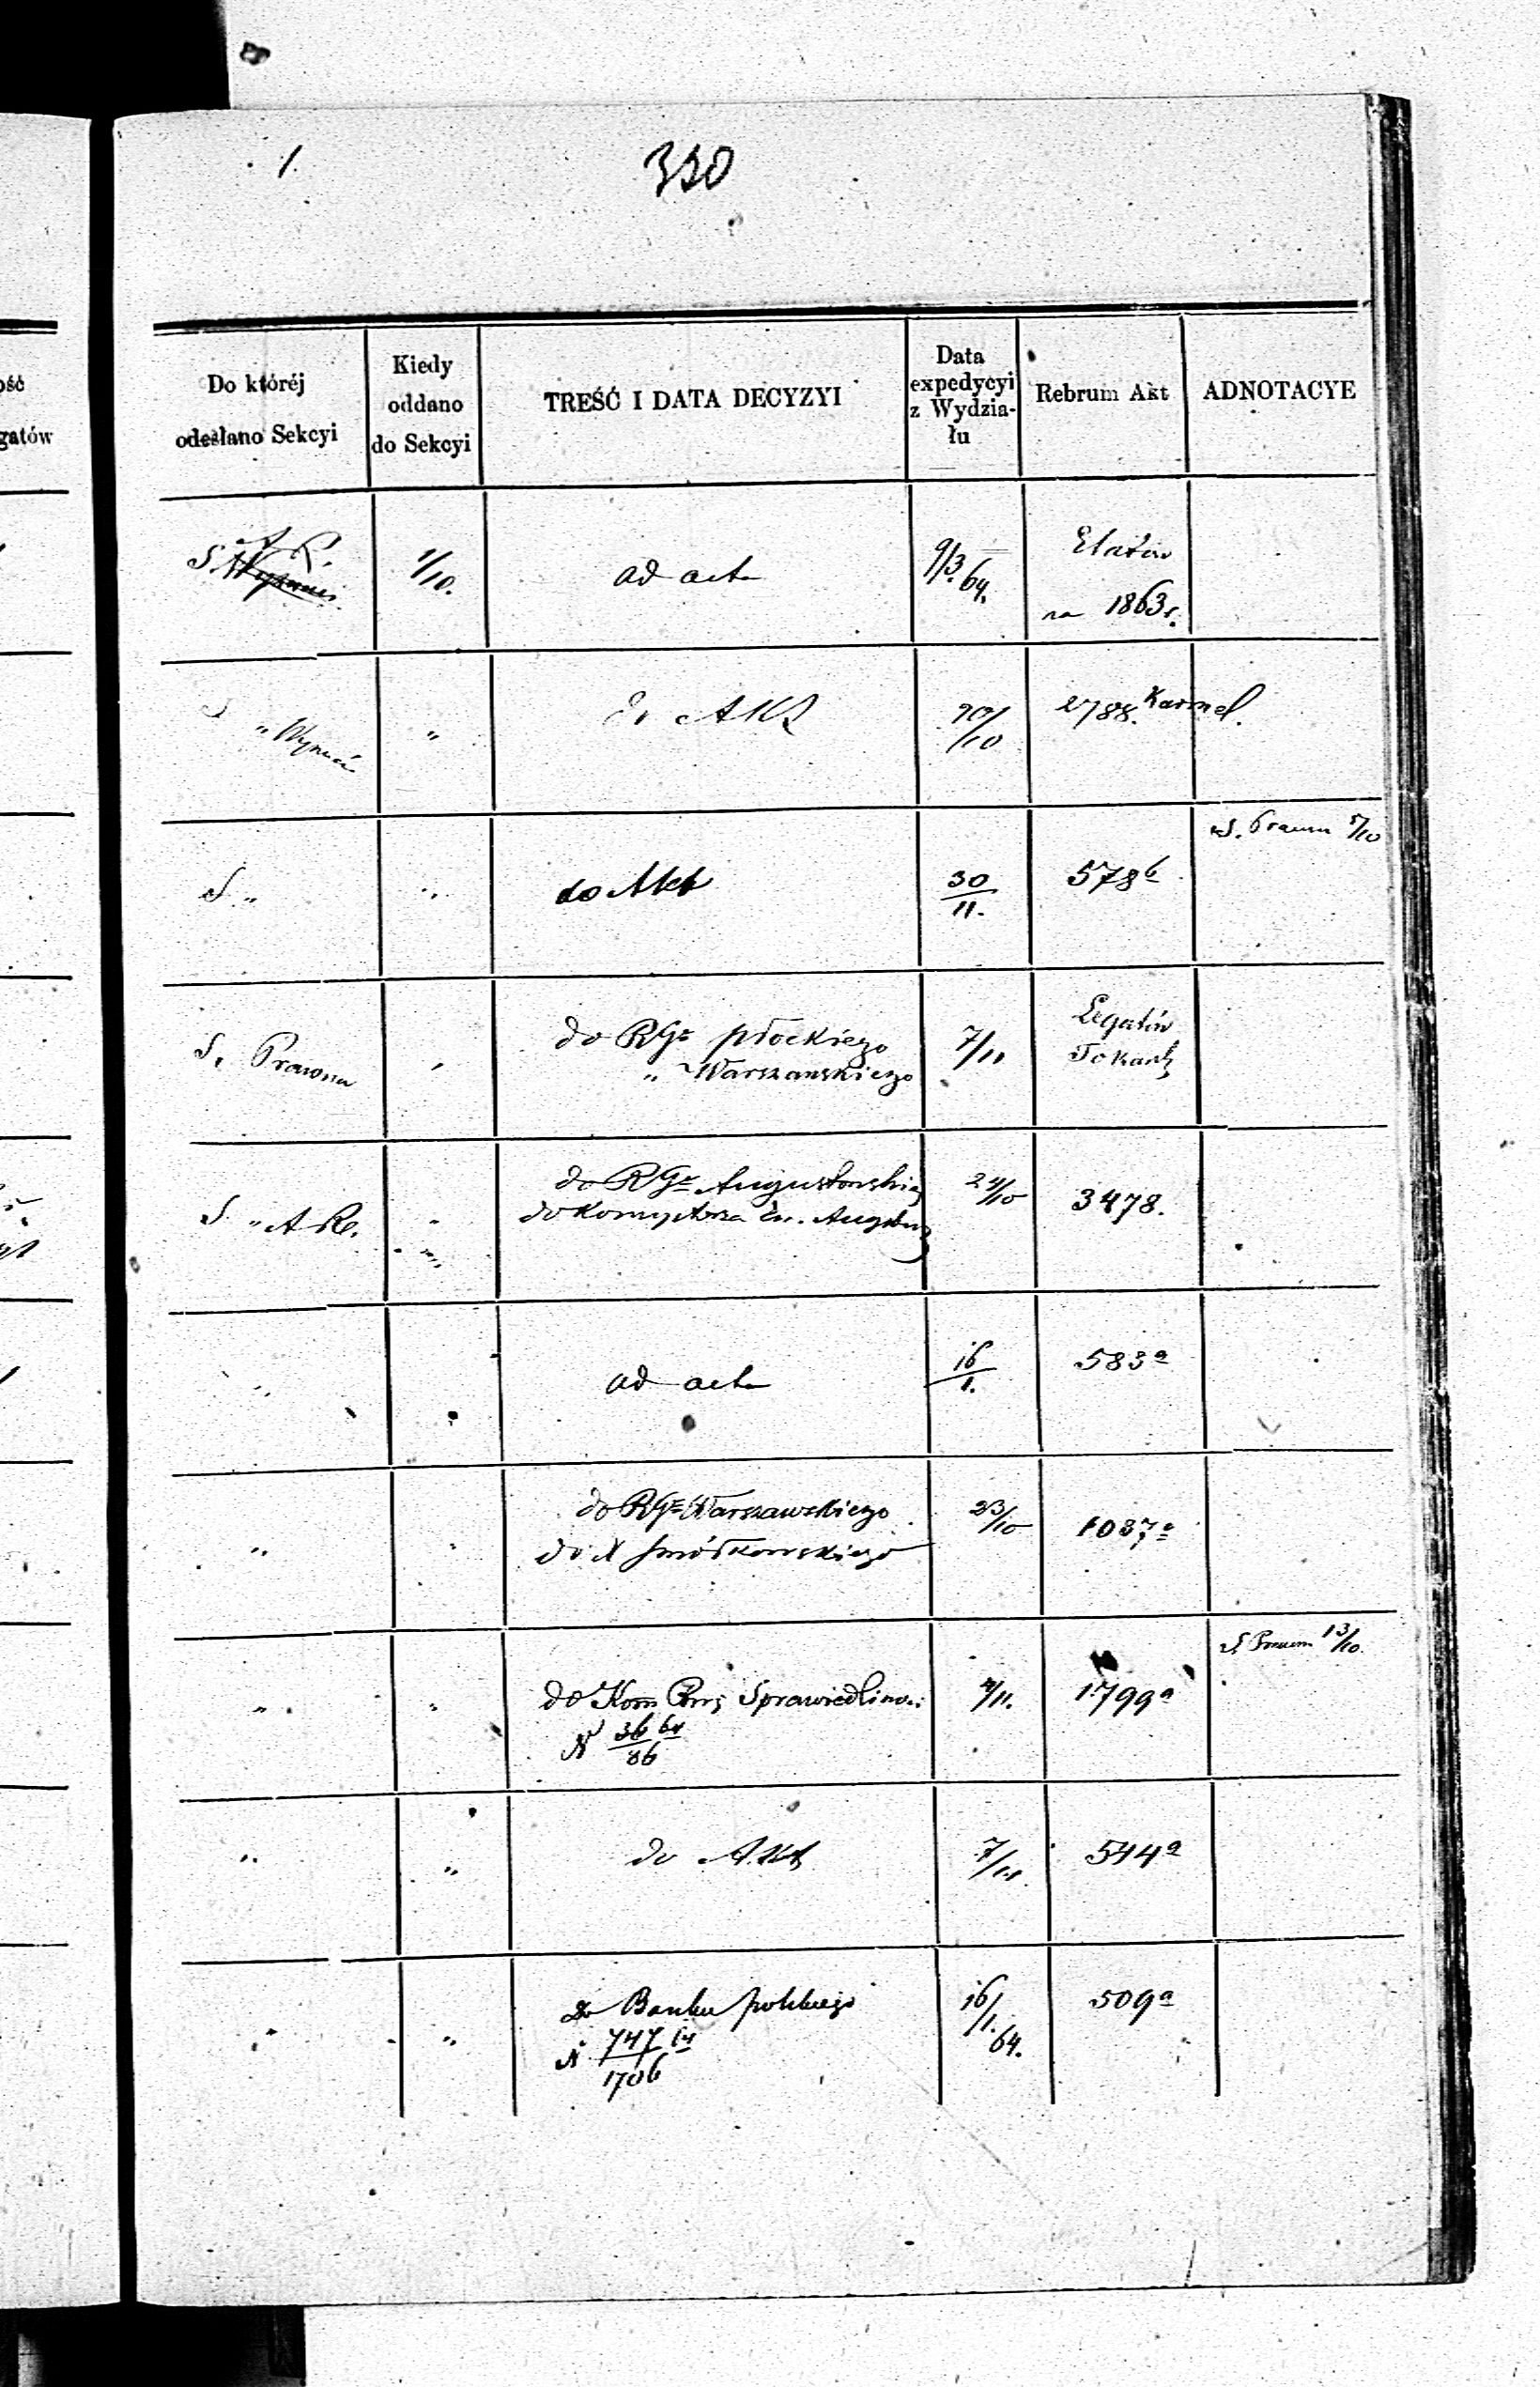 1.
350
Do któréj
odesłano Sekcyi
Kiedy
oddano
do Sekcyi
TREŚĆ I DATA DECYZYI
Data
expedycyi
z Wydzia-
łu
Rebrum Akt
ADNOTACYE
ość
gatów
S. A R.
1/10.
ad acta
9/3 64.
Etatów
na 1863 r.
" Wyznań
"
do Akt
/10
2788. Karmel.
S. "
"
do Akt
30/11.
578 b
S. Prawna 5/10
S. Prawna
"
do RGo płockiego
" Warszawskiego
7/11
Legatów
S " A R.
"
do RGo Augustowskiego
2 /10
3478.
"
ad acta
16/1.
583 a
"
"
do RGo Warszawskiego
do X Smółkowskiego
23/10
1037 a
"
"
do Kom Rząd Sprawiedliwości
N 36 64/86
/11.
1799 a
S Prawna 13/10.
"
"
do Akt
7/
544 a
"
"
do Banku polskiego
N 747 64/1706
16/1. 64.
509 a